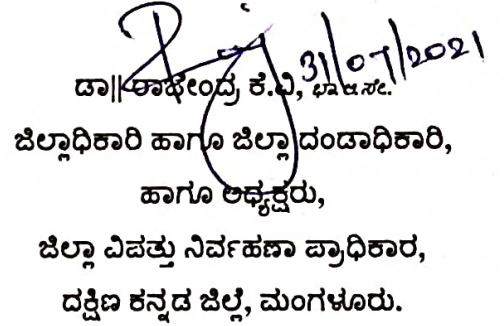 31/07/2021
ಡಾ|| ರಾಜೇಂದ್ರ ಕೆ.ವಿ, ಭಾ.ಆ.ಸೇ.
ಜಿಲ್ಲಾಧಿಕಾರಿ ಹಾಗೂ ಜಿಲ್ಲಾ ದಂಡಾಧಿಕಾರಿ,
ಹಾಗೂ ಅಧ್ಯಕ್ಷರು,
ಜಿಲ್ಲಾ ವಿಪತ್ತು ನಿರ್ವಹಣಾ ಪ್ರಾಧಿಕಾರ,
ದಕ್ಷಿಣ ಕನ್ನಡ ಜಿಲ್ಲೆ, ಮಂಗಳೂರು.